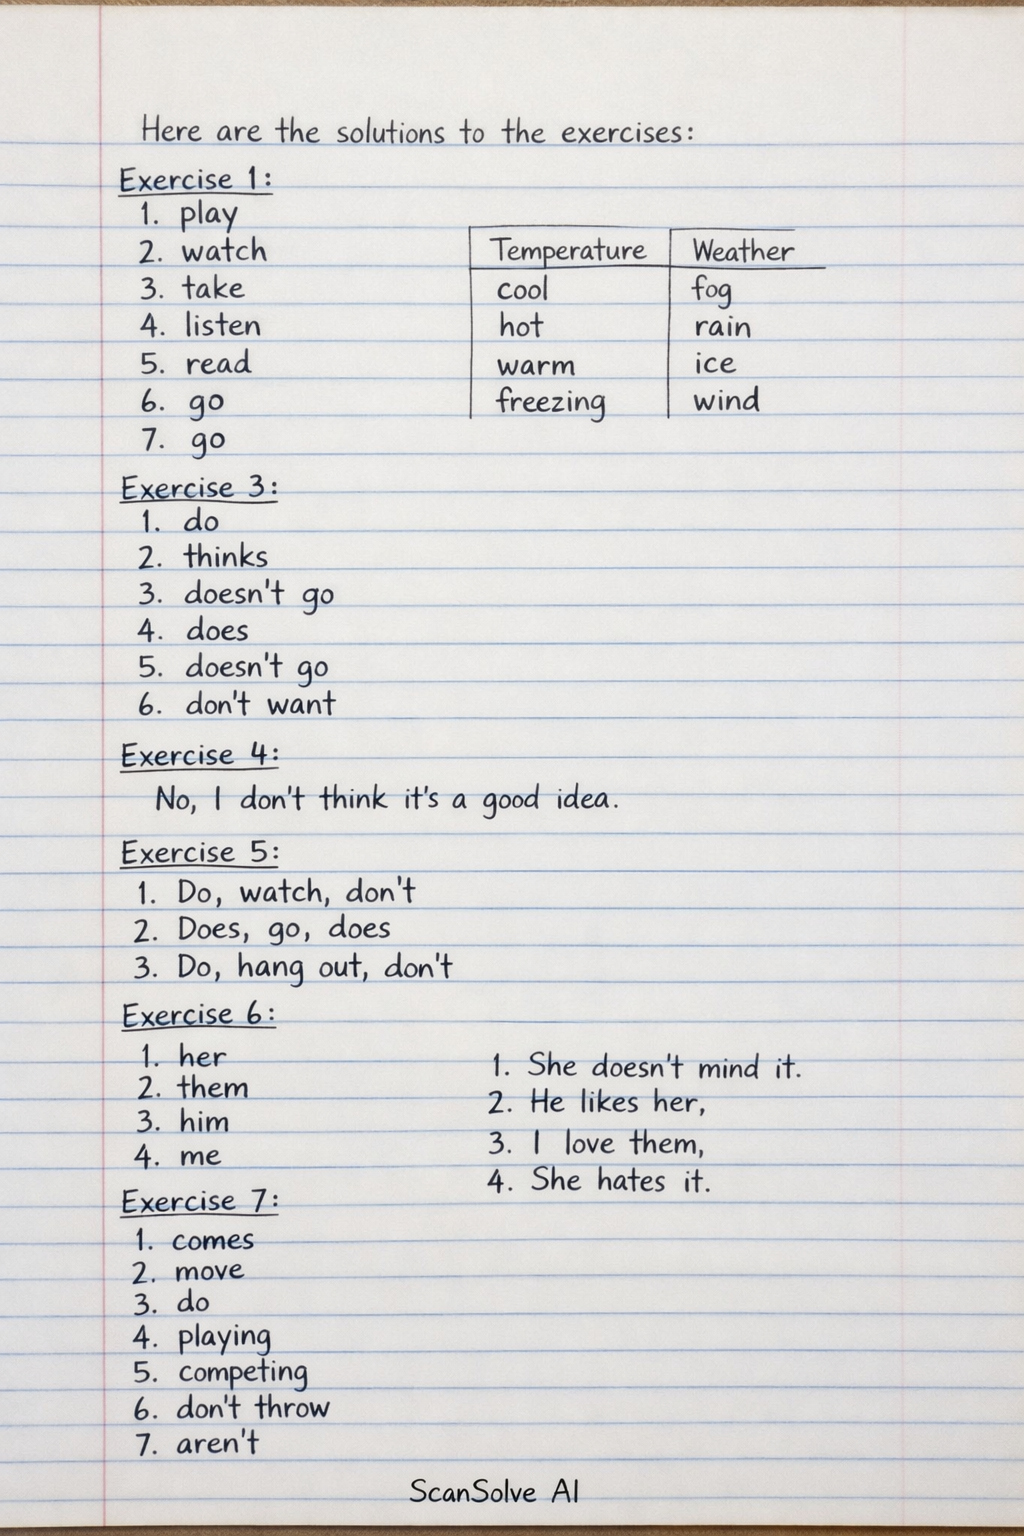 Here are the solutions to the exercises:
Exercise 1:
1. play
2. watch
3. take
4. listen
5. read
6. go
7. go
Temperature Weather
cool fog
hot rain
warm ice
freezing wind
Exercise 3:
1. do
2. thinks
3. doesn't go
4. does
5. doesn't go
6. don't want
Exercise 4:
No, I don't think it's a good idea.
Exercise 5:
1. Do, watch, don't
2. Does, go, does
3. Do, hang out, don't
Exercise 6:
1. her
2. them
3. him
4. me
1. She doesn't mind it.
2. He likes her,
3. I love them,
4. She hates it.
Exercise 7:
1. comes
2. move
3. do
4. playing
5. competing
6. don't throw
7. aren't
ScanSolve AI